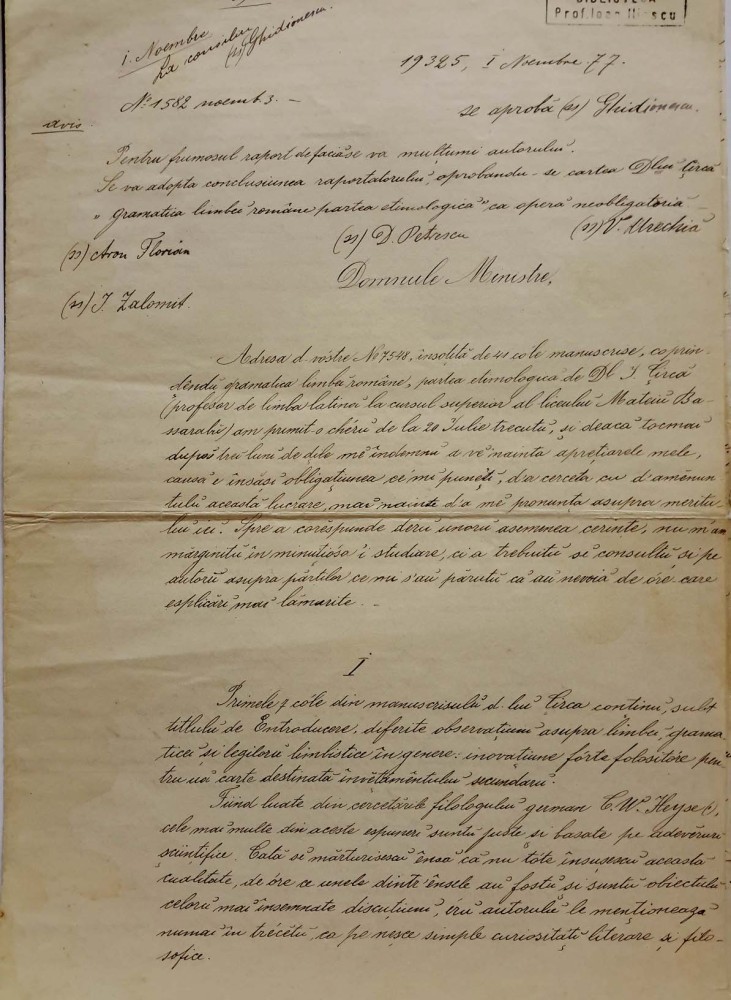 BIBLIOTECA
Prof. Ioan Iliescu
1. Noembre
La consiliu
(ss) Ghidionescu
19325, 1 Noembre 77.
Nº 1582 noemb 3. –
se aprobă (ss) Ghidionescu.
avis
Pentru frumosul raport de facià se va mulțumi autorului.
Se va adopta conclusiunea raportatorului, aprobandu-se cartea Dlui Circă
„gramatica limbei române partea etimologică" ca operă neobligatoriă
(ss) Aron Florian
(ss) D. Petrescu
(ss) V. Urechiă
(ss) I. Zalomit.
Domnule Ministre,
Adresa d-vóstre Nº 7548, însoțită de 41 cóle manuscrise, coprin-
dêndŭ gramatica limbei române, partea etimologică de Dl I. Circă
(profesor de limba latină la cursul superior al liceului Mateiŭ Ba-
ssarabŭ) am primit-o chérŭ de la 20 Iulie trecutŭ, și déacă tocmai
dupe trei luni de dile mĕ îndemnŭ a vĕ înainta aprețiările mele,
causa e însăși obligațiunea ce'mi puneți, d'a cerceta cu d'amĕnun-
tulŭ acéstă lucrare, mai nainte d'a mĕ pronunța asupra meritu-
lui ei. Spre a corĕspunde derŭ unorŭ asemenea cerințe, nu m'am
mărginitŭ în minuțiósa'i studiare, ci a trebuitŭ se consultŭ și pe
autorŭ asupra părților ce mi s'aŭ părutŭ că aŭ nevoiă de óre-care
esplicări mai lămurite. –
I
Primele 7 cóle din manuscrisulŭ d-lui Circa continŭ, subt
titlulŭ de Entroducere, diferite observațiuni asupra limbei, grama-
ticei și legilorŭ limbistice în genere: inovațiune fórte folositóre pen-
tru uă carte destinată învĕțămêntului secundarŭ.
Fiind luate din cercetările filologului german C. W. Heyse,
cele mai multe din aceste espuneri suntŭ juste și basate pe adevĕruri
sciințifice. Cată se mărturisescŭ ênsĕ că nu tóte însușescŭ acéstă
cualitate, de óre-ce unele dintr'ênsele aŭ fostŭ și suntŭ obiectulŭ
celorŭ mai însemnate discuțiuni, érŭ autorulŭ le menționéză
numai în trécĕtŭ, ca pe nesce simple curiosități literare și filo-
sofice.